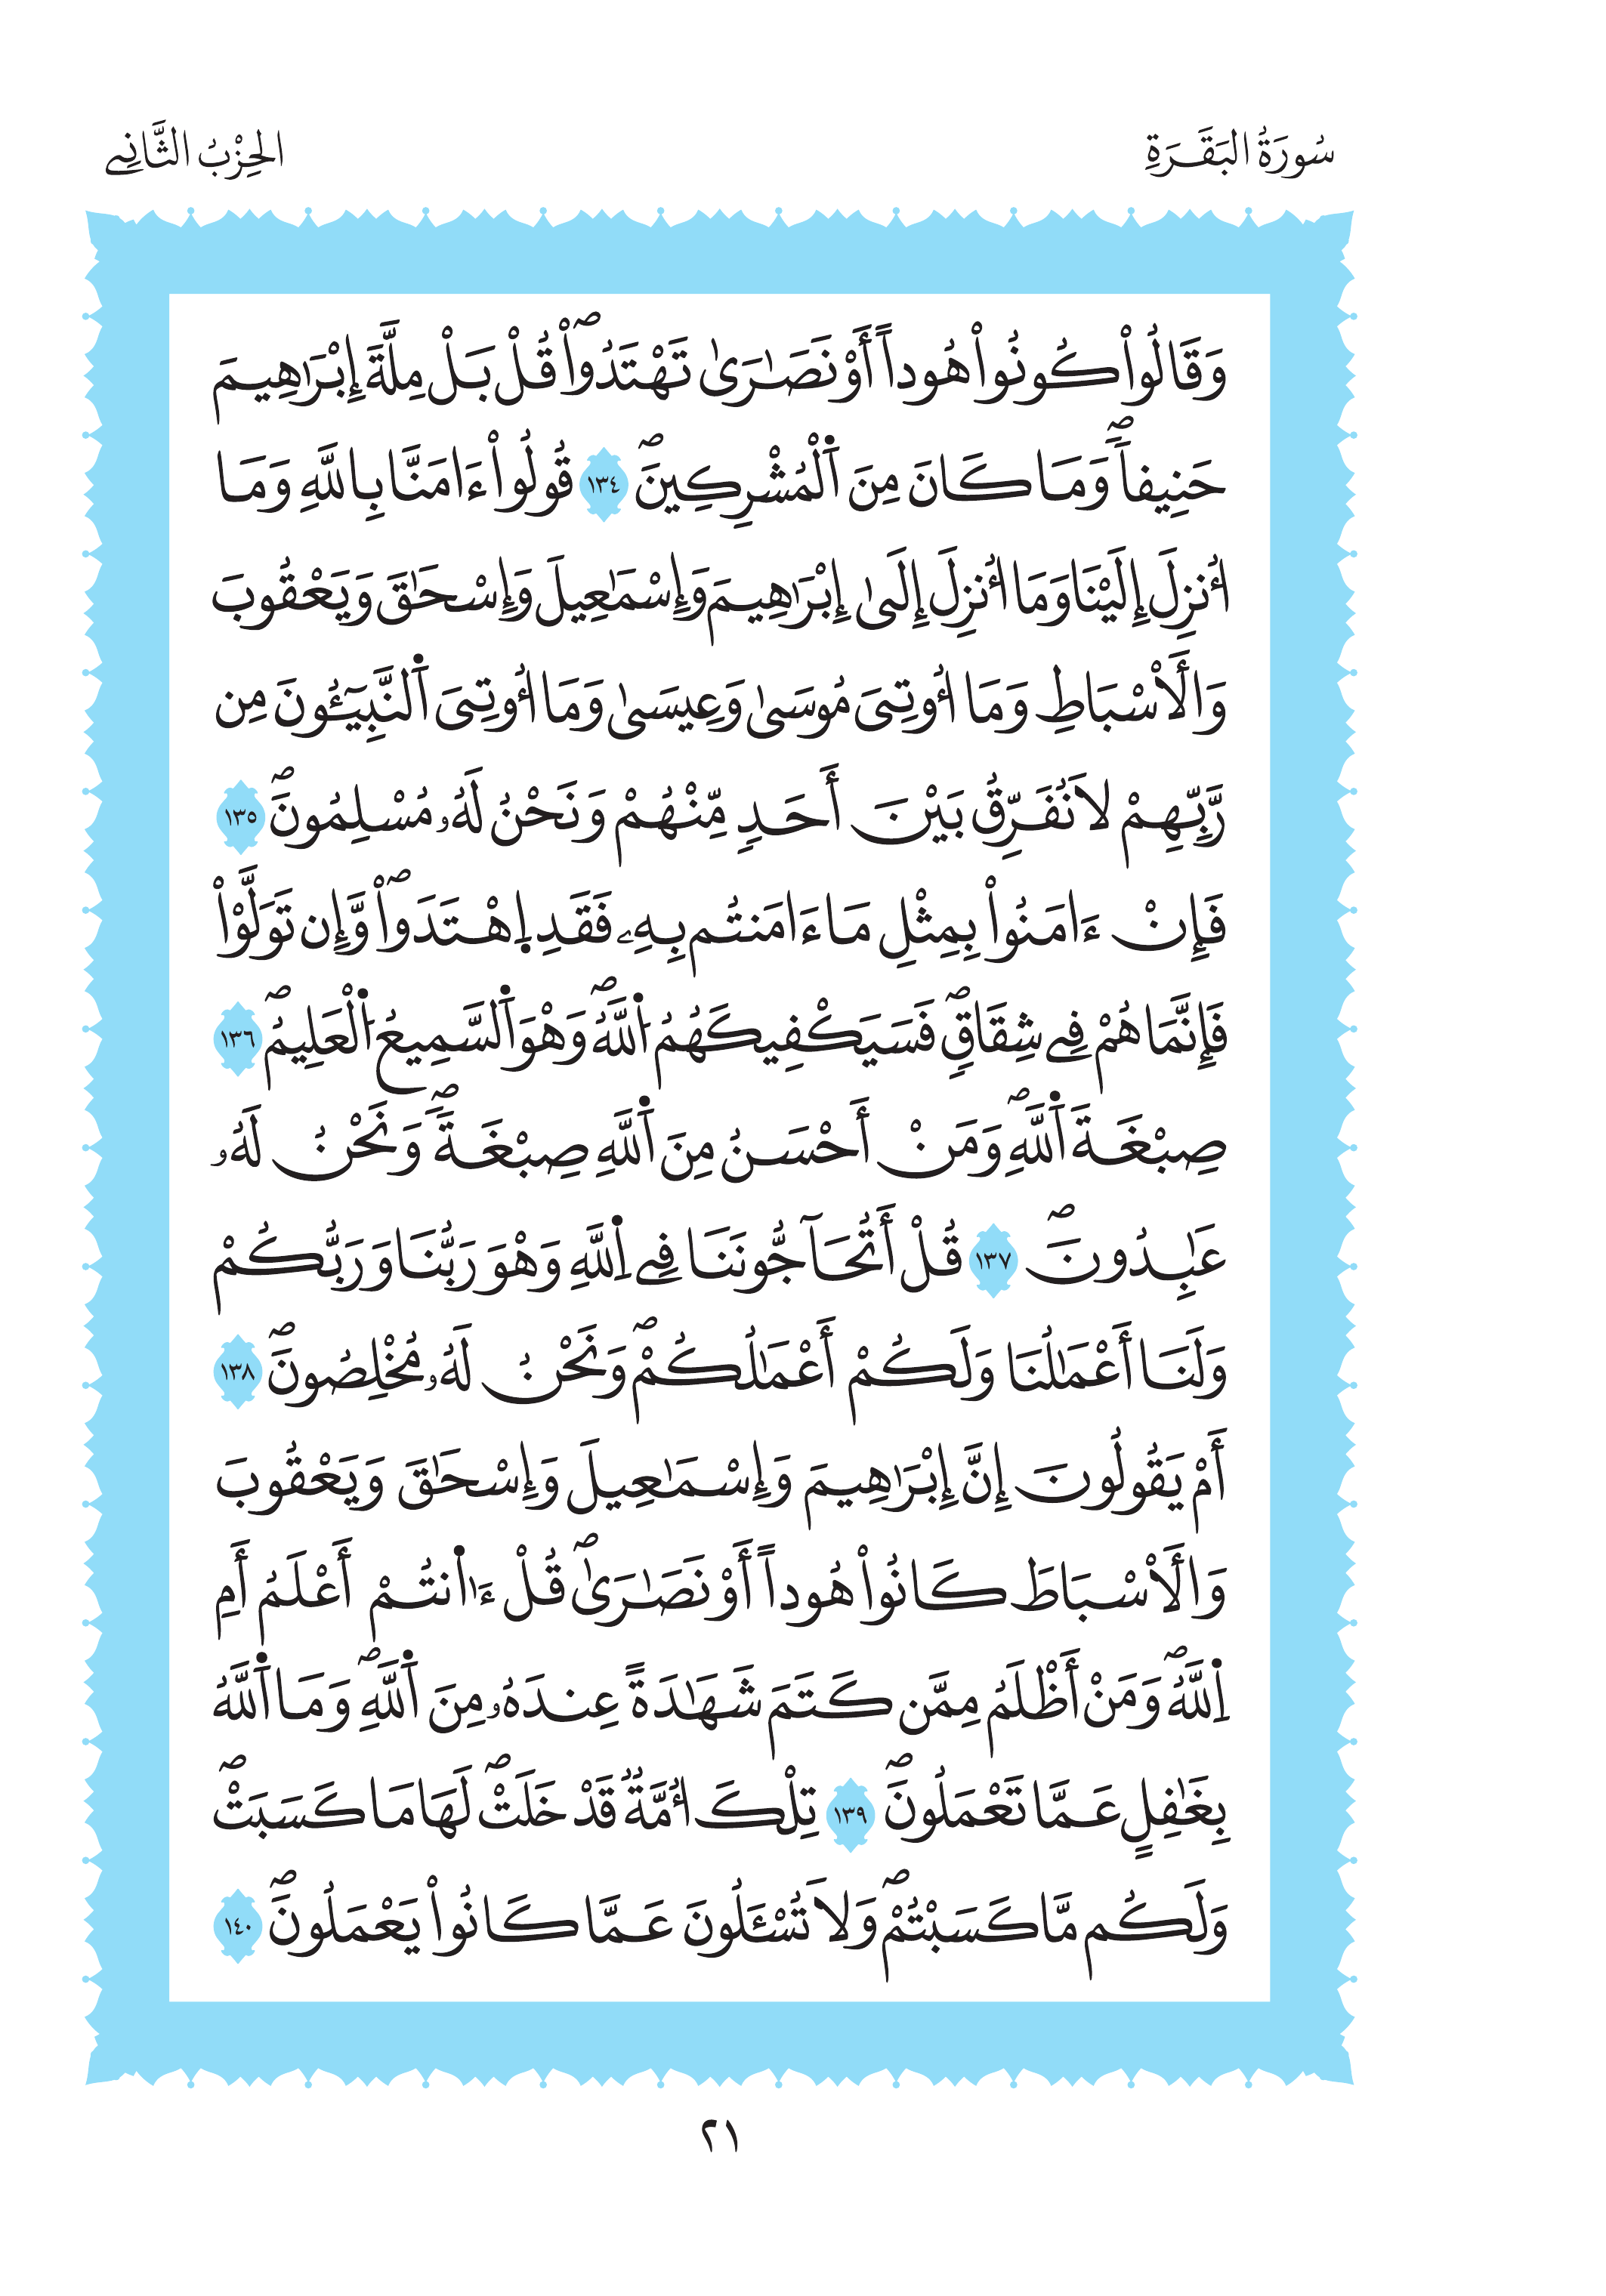 سُورَةُ البَقَرَةِ
الحِزْبُ الثَّانِے
وَقَالُواْ كُونُواْ هُوداً أَوْ نَصَٰرَىٰ تَهْتَدُواْۖ قُلْ بَلْ مِلَّةَ إِبْرَٰهِيمَ
حَنِيفاٗۖ وَمَا كَانَ مِنَ اَ۬لْمُشْرِكِينَۖ ١٣٤ قُولُواْ ءَامَنَّا بِاللَّهِ وَمَا
أُنزِلَ إِلَيْنَا وَمَا أُنزِلَ إِلَىٰ إِبْرَٰهِيمَ وَإِسْمَٰعِيلَ وَإِسْحَٰقَ وَيَعْقُوبَ
وَالَاسْبَاطِ وَمَا أُوتِىَ مُوسَىٰ وَعِيسَىٰ وَمَا أُوتِىَ اَ۬لنَّبِيٓـُٔونَ مِن
رَّبِّهِمْ لَا نُفَرِّقُ بَيْنَ أَحَدٍ مِّنْهُمْ وَنَحْنُ لَهُۥ مُسْلِمُونَۖ ١٣٥
فَإِنْ ءَامَنُواْ بِمِثْلِ مَا ءَامَنتُم بِهِۦ فَقَدِ اِ۪هْتَدَواْۖ وَّإِن تَوَلَّوْاْ
فَإِنَّمَا هُمْ فِے شِقَاقٖۖ فَسَيَكْفِيكَهُمُ اُ۬للَّهُۖ وَهْوَ اَ۬لسَّمِيعُ اُ۬لْعَلِيمُۖ ١٣٦
صِبْغَةَ اَ۬للَّهِۖ وَمَنْ أَحْسَنُ مِنَ اَ۬للَّهِ صِبْغَةٗۖ وَنَحْنُ لَهُۥ
عَٰبِدُونَۖ ١٣٧ قُلْ أَتُحَآجُّونَنَا فِے اِ۬للَّهِ وَهْوَ رَبُّنَا وَرَبُّكُمْ
وَلَنَا أَعْمَٰلُنَا وَلَكُمْ أَعْمَٰلُكُمْۖ وَنَحْنُ لَهُۥ مُخْلِصُونَۖ ١٣٨
أَمْ يَقُولُونَ إِنَّ إِبْرَٰهِيمَ وَإِسْمَٰعِيلَ وَإِسْحَٰقَ وَيَعْقُوبَ
وَالَاسْبَاطَ كَانُواْ هُوداً أَوْ نَصَٰرَىٰۖ قُلْ ءَا۬نتُمْ أَعْلَمُ أَمِ
اِ۬للَّهُۖ وَمَنْ أَظْلَمُ مِمَّن كَتَمَ شَهَٰدَةً عِندَهُۥ مِنَ اَ۬للَّهِۖ وَمَا اَ۬للَّهُ
بِغَٰفِلٍ عَمَّا تَعْمَلُونَۖ ١٣٩ تِلْكَ أُمَّةٌ قَدْ خَلَتْۖ لَهَا مَا كَسَبَتْۖ
وَلَكُم مَّا كَسَبْتُمْۖ وَلَا تُسْـَٔلُونَ عَمَّا كَانُواْ يَعْمَلُونَۖ ١٤٠
٢١